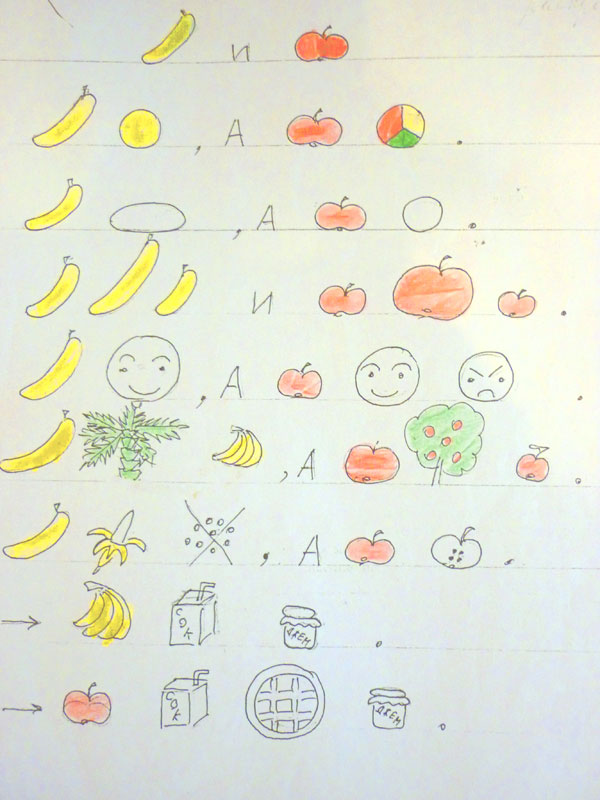 И
, А .
, А .
И .
, А .
, А .
, А .
→ СОК ДЖЕМ .
→ СОК ДЖЕМ .